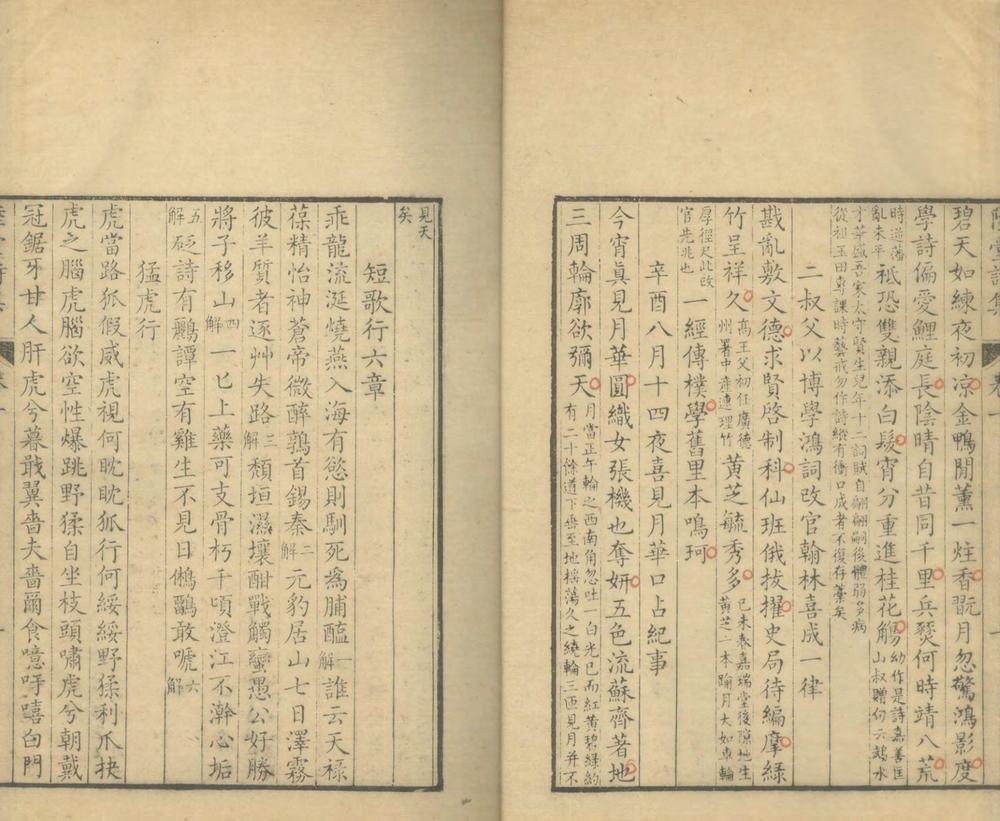 碧天如練夜初凉金鴨閒薰一炷香翫月忽驚鴻影度
學詩偏愛鯉庭長陰晴自昔同千里兵燹何時靖八荒
時逆藩亂未平祗恐雙親添白髮宵分重進桂花觴幼作是詩嘉善匡山叔贈句云越水
才華盛吾家太守賢生兒年十二詞賦自翩翩嗣後體弱多病
從祖玉田專課時藝戒勿作詩縱有衝口成者不復存藁矣
二叔父以博學鴻詞改官翰林喜成一律
戡亂敷文德求賢啓制科仙班俄拔擢史局待編摩綠
竹呈祥久高王父初任廣德州署中產連理竹黃芝毓秀多己未春嘉瑞堂後隙地生黃芝二本踰月大如車輪
厚徑尺此改官先兆也一經傳樸學舊里本鳴珂
辛酉八月十四夜喜見月華口占紀事
今宵真見月華圓織女張機也奪妍五色流蘇齊著地
三周輪廓欲彌天月當正午輪之西南角忽吐一白光已而紅黃碧綠約有二十餘道下垂至地搖蕩久之繞輪三匝見月并不
見天矣
短歌行六章
乖龍流涎燒燕入海有慾則馴死爲脯醢一解誰云天祿
葆精怡神蒼帝微醉鶉首錫秦二解元豹居山七日澤霧
彼羊質者逐艸失路三解頹垣濕壤酣戰觸蠻愚公好勝
將子移山四解一匕上藥可支骨朽千頃澄江不澣心垢
五解砭詩有鸝譚空有雞生不見日鵂鶹敢嗁六解
猛虎行
虎當路狐假威虎視何眈眈狐行何綏綏野猱利爪抉
虎之腦虎腦欲空性爆跳野猱自坐枝頭嘯虎兮朝戴
冠鋸牙甘人肝虎兮暮戢翼嗇夫嗇爾食噫吁嘻白門